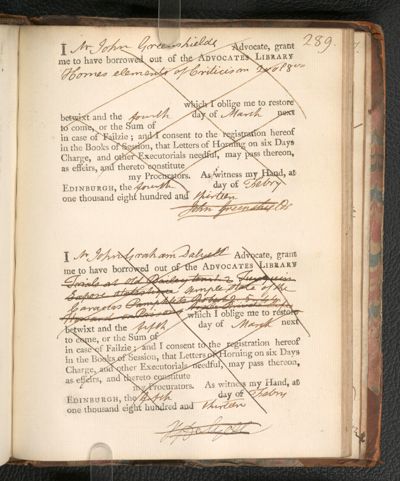 289.
I Mr John Greenshields Advocate, grant
me to have borrowed out of the ADVOCATES LIBRARY
Homes elements of Criticism 2 vol 8vo
which I oblige me to restore
betwixt and the fourth day of March next
to come, or the Sum of
in case of Failzie; and I consent to the registration hereof
in the Books of Session, that Letters of Horning on six Days
Charge, and other Executorials needful, may pass thereon,
as effeirs, and thereto constitute
my Procurators. As witness my Hand, at
EDINBURGH, the fourth day of Febry
one thousand eight hundred and thirteen
John Greenshields
I Mr John Graham Dalyell Advocate, grant
me to have borrowed out of the ADVOCATES LIBRARY
Trials at old Bailey
State of the
Pamphlets
which I oblige me to restore
betwixt and the fifth day of March next
to come, or the Sum of
in case of Failzie; and I consent to the registration hereof
in the Books of Session, that Letters of Horning on six Days
Charge, and other Executorials needful, may pass thereon,
as effeirs, and thereto constitute
my Procurators. As witness my Hand, at
EDINBURGH, the fifth day of Febry
one thousand eight hundred and thirteen